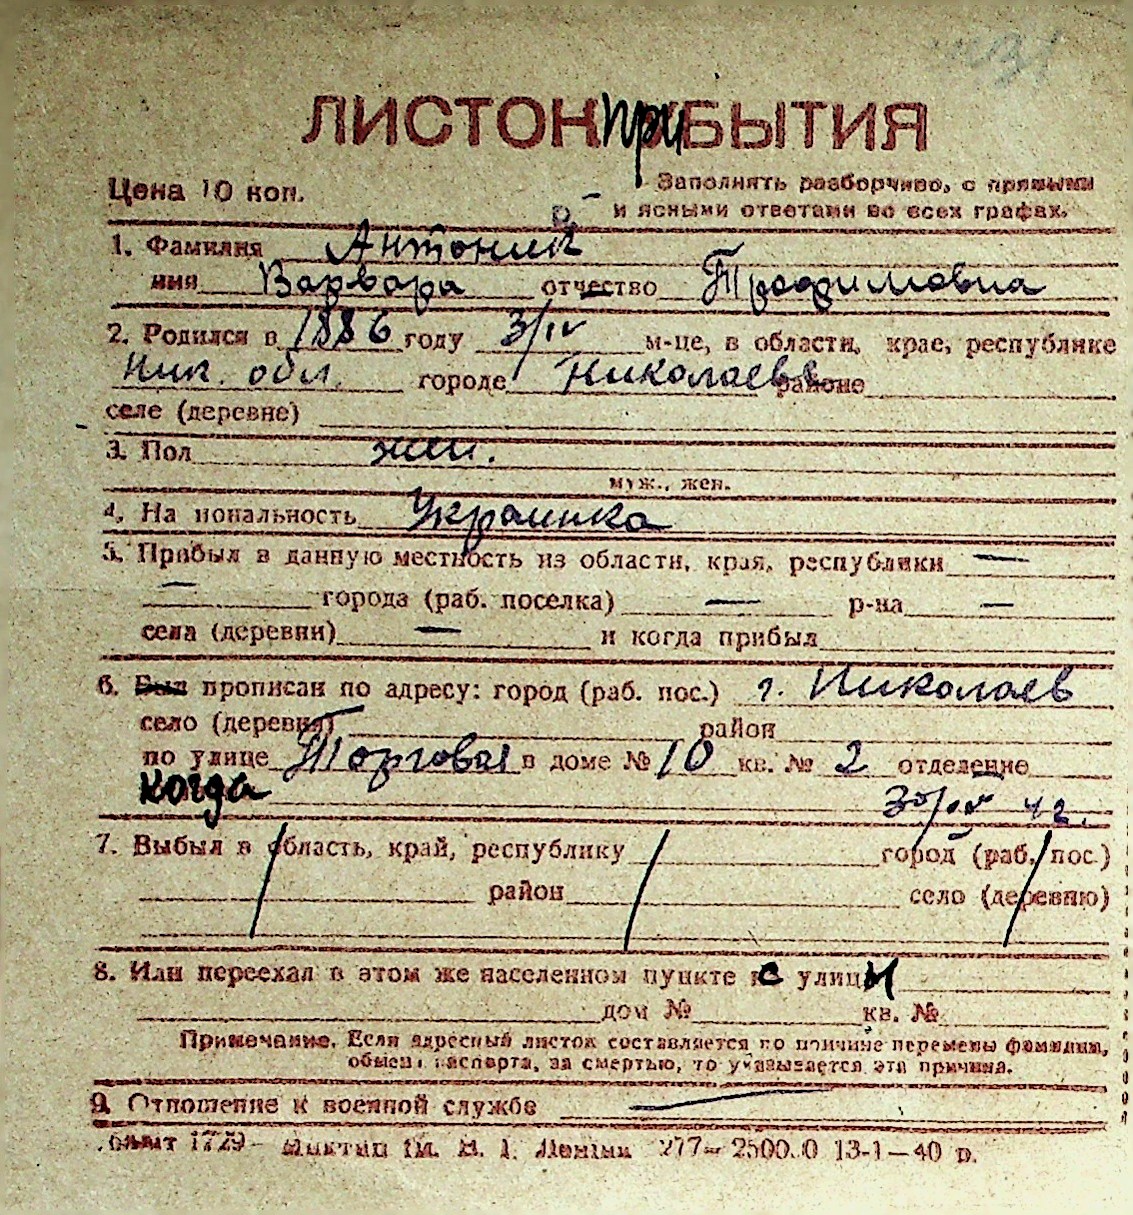 ЛИСТОК ПРИБЫТИЯ
Цена 10 коп.
Заполнять разборчиво, с прямыми
и ясными ответами во всех графах.
1. Фамилия Антоник
имя Варвара отчество Трофимовна
2. Родился в 1886 году 3/IV м-це, в области, крае, республике
Ник. обл. городе Николаеве районе
селе (деревне)
3. Пол жен.
муж., жен.
4. Национальность Украинка
5. Прибыл в данную местность из области, края, республики —
— города (раб. поселка) — р-на —
села (деревни) — и когда прибыл
6. Был прописан по адресу: город (раб. пос.) г. Николаев
село (деревня) район
по улице Торговая в доме № 10 кв. № 2 отделение
когда
7. Выбыл в область, край, республику город (раб. пос.)
район село (деревню)
8. Или переехал в этом же населенном пункте с улицы
дом № кв. №
Примечание. Если адресный листок составляется по причине перемены фамилии,
обмена паспорта, за смертью, то указывается эта причина.
9. Отношение к военной службе
1729 — им. В. І. Леніна 277— 13-1—40 р.